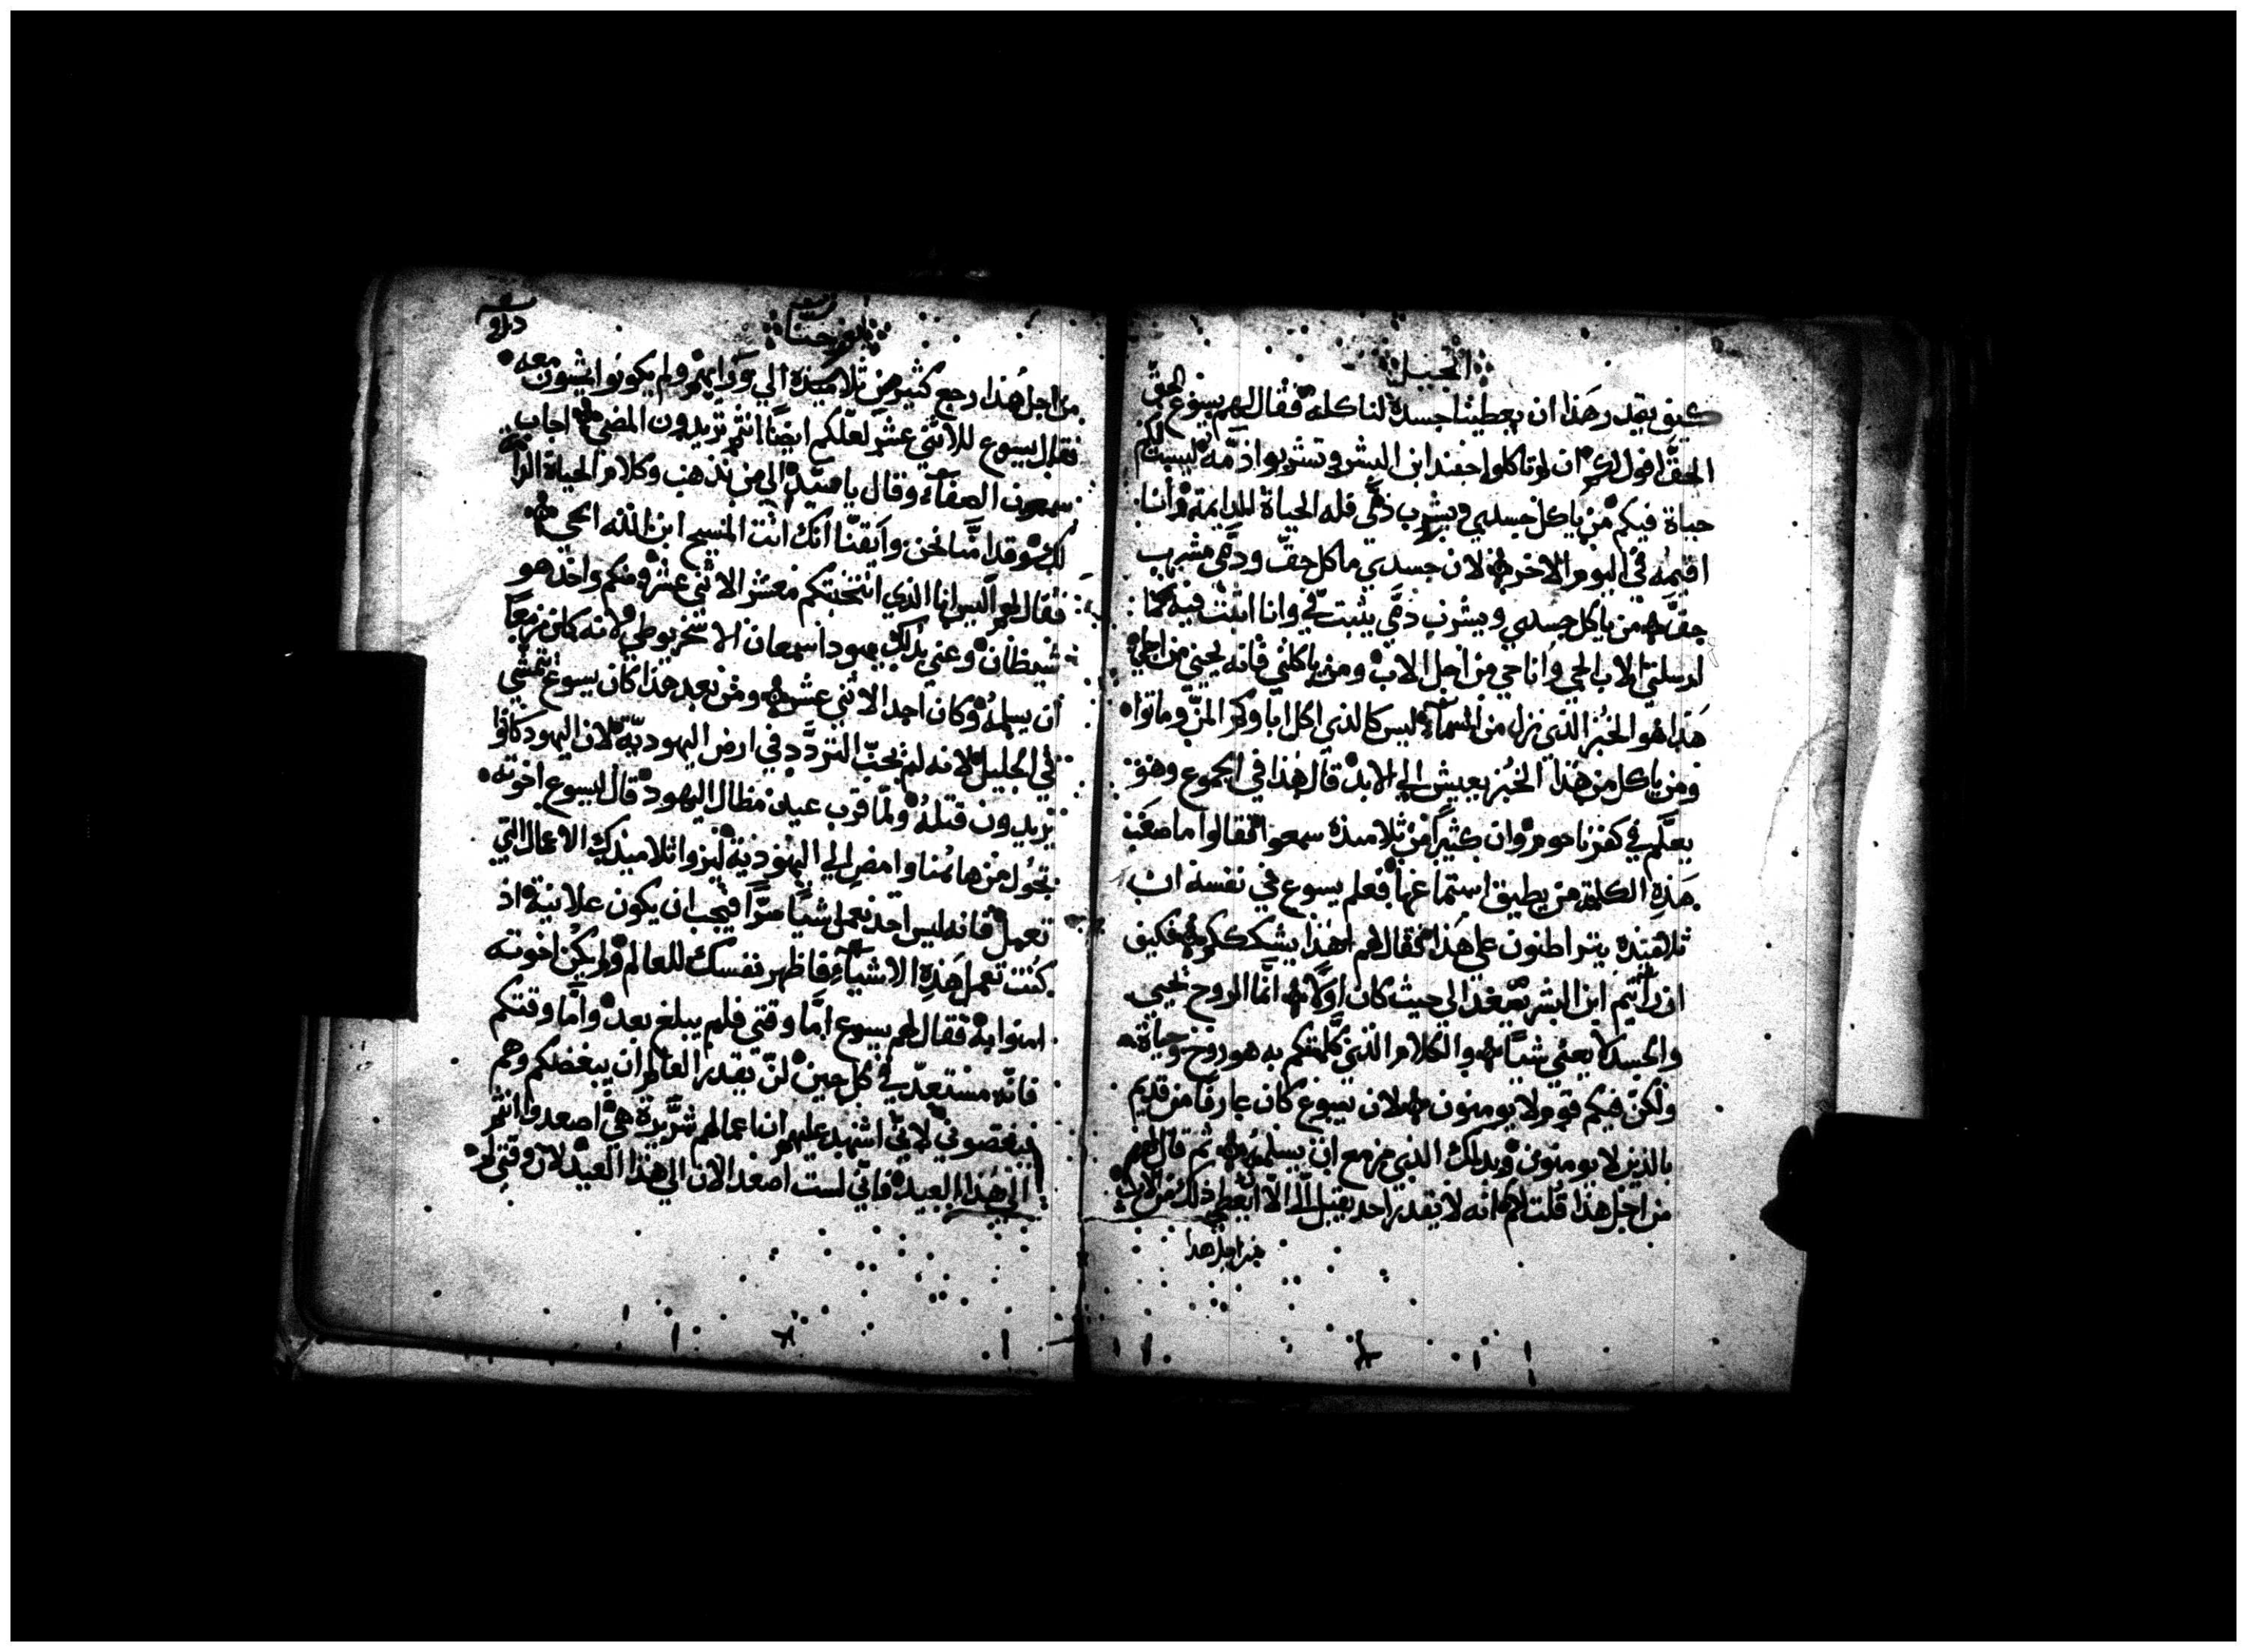 انجيل
كيف يقدر هذا ان يعطينا جسده لناكله فقال لهم يسوع الحقّ
الحقّ اقول لكم ان لم تاكلوا جسد ابن البشر وتشربوا دمه ليست لكم
حياة فيكم من ياكل جسدي ويشرب دمّي فله الحياة الدايمة وانا
اقيمه في اليوم الاخر لان جسدي ماكل حقّ ودمّي مشرب
حقّ من ياكل جسدي ويشرب دمّي يثبت فيّ وانا اثبت فيه كما
ارسلني الاب الحي وانا حي من اجل الاب ومن ياكلني فانه يحيى من اجلي
هذا هو الخبز الذي نزل من السماء ليس كالذي اكل اباوكم المنّ وماتوا
ومن ياكل من هذا الخبز يعيش الي الابد قال هذا في المجموع وهو
يعلّم في كفرناحوم وان كثيرًا من تلاميذه سمعوا فقالوا ما اصعب
هذه الكلمة من يطيق استماعها فعلم يسوع في نفسه ان
تلاميذه يتراطنون علي هذا فقال لهم اهذا يشككم فكيف
ان رأيتم ابن البشر يصعد الي حيث كان اوّلا انّما الروح تحيي
والجسد لا يغني شيًّا والكلام الذي كلّمتكم به هو روح وحياة
ولكنّ فيكم قوم لا يومنون لان يسوع كان عارفًا من قديم
بالذين لا يومنون وبدلك الذي مزمع ان يسلمه ثم قال لهم
من اجل هذا قلت لكم انه لا يقدر احد يقبل الّي الّا ان يُعطي ذلك من الاب
من اجل هدا
يوحنا
من اجل هذا رجع كثير من تلاميذه الي ورايهم ولم يكونوا يمشون معه
فقال يسوع للاثني عشر لعلّكم ايضًا انتم تريدون المضي اجاب
سمعون الصفآء وقال يا سيّد الي من نذهب وكلام الحياة الدايمة
لك وقد امنّا نحن وايقنّا انك انت المسيح ابن الله الحي
فقال لهم اليس انا الذي انتخبتكم معشر الاثني عشر ومنكم واحد هو
شيطان وعني بذلك يهودا سمعان الاسخريوطي لانه كان مزمعًا
أن يسلمه وكان احد الاثني عشر ومن بعد هذا كان يسوع يتمشّي
في الجليل لانه لم يحبّ التردّد في ارض اليهوديّة لان اليهود كانوا
يريدون قتله ولمّا قرب عيد مظال اليهود قال ليسوع اخوته
تحوّل من هاهنا وامضِ الي اليهوذية ليروا تلاميذك الاعمال التي
تعمل فانه ليس احد يعمل شيًّا سرًّا فيحب ان يكون علانية اذ
كنت تعمل هذه الاشيآء فاظهر نفسك للعالم ولم يكن اخوته
امنوا به فقال لهم يسوع امّا وقتي فلم يبلغ بعد وامّا وقتكم
فانّه مستعدّ في كل حين لن يقدر العالم ان يبغضكم وهم
يبغضوني لانّي اشهد عليهم ان اعمالهم شرّيرة هي اصعدوا انتم
الي هذا العيد فانّي لست اصعد الان الي هذا العيد لان وقتي لم